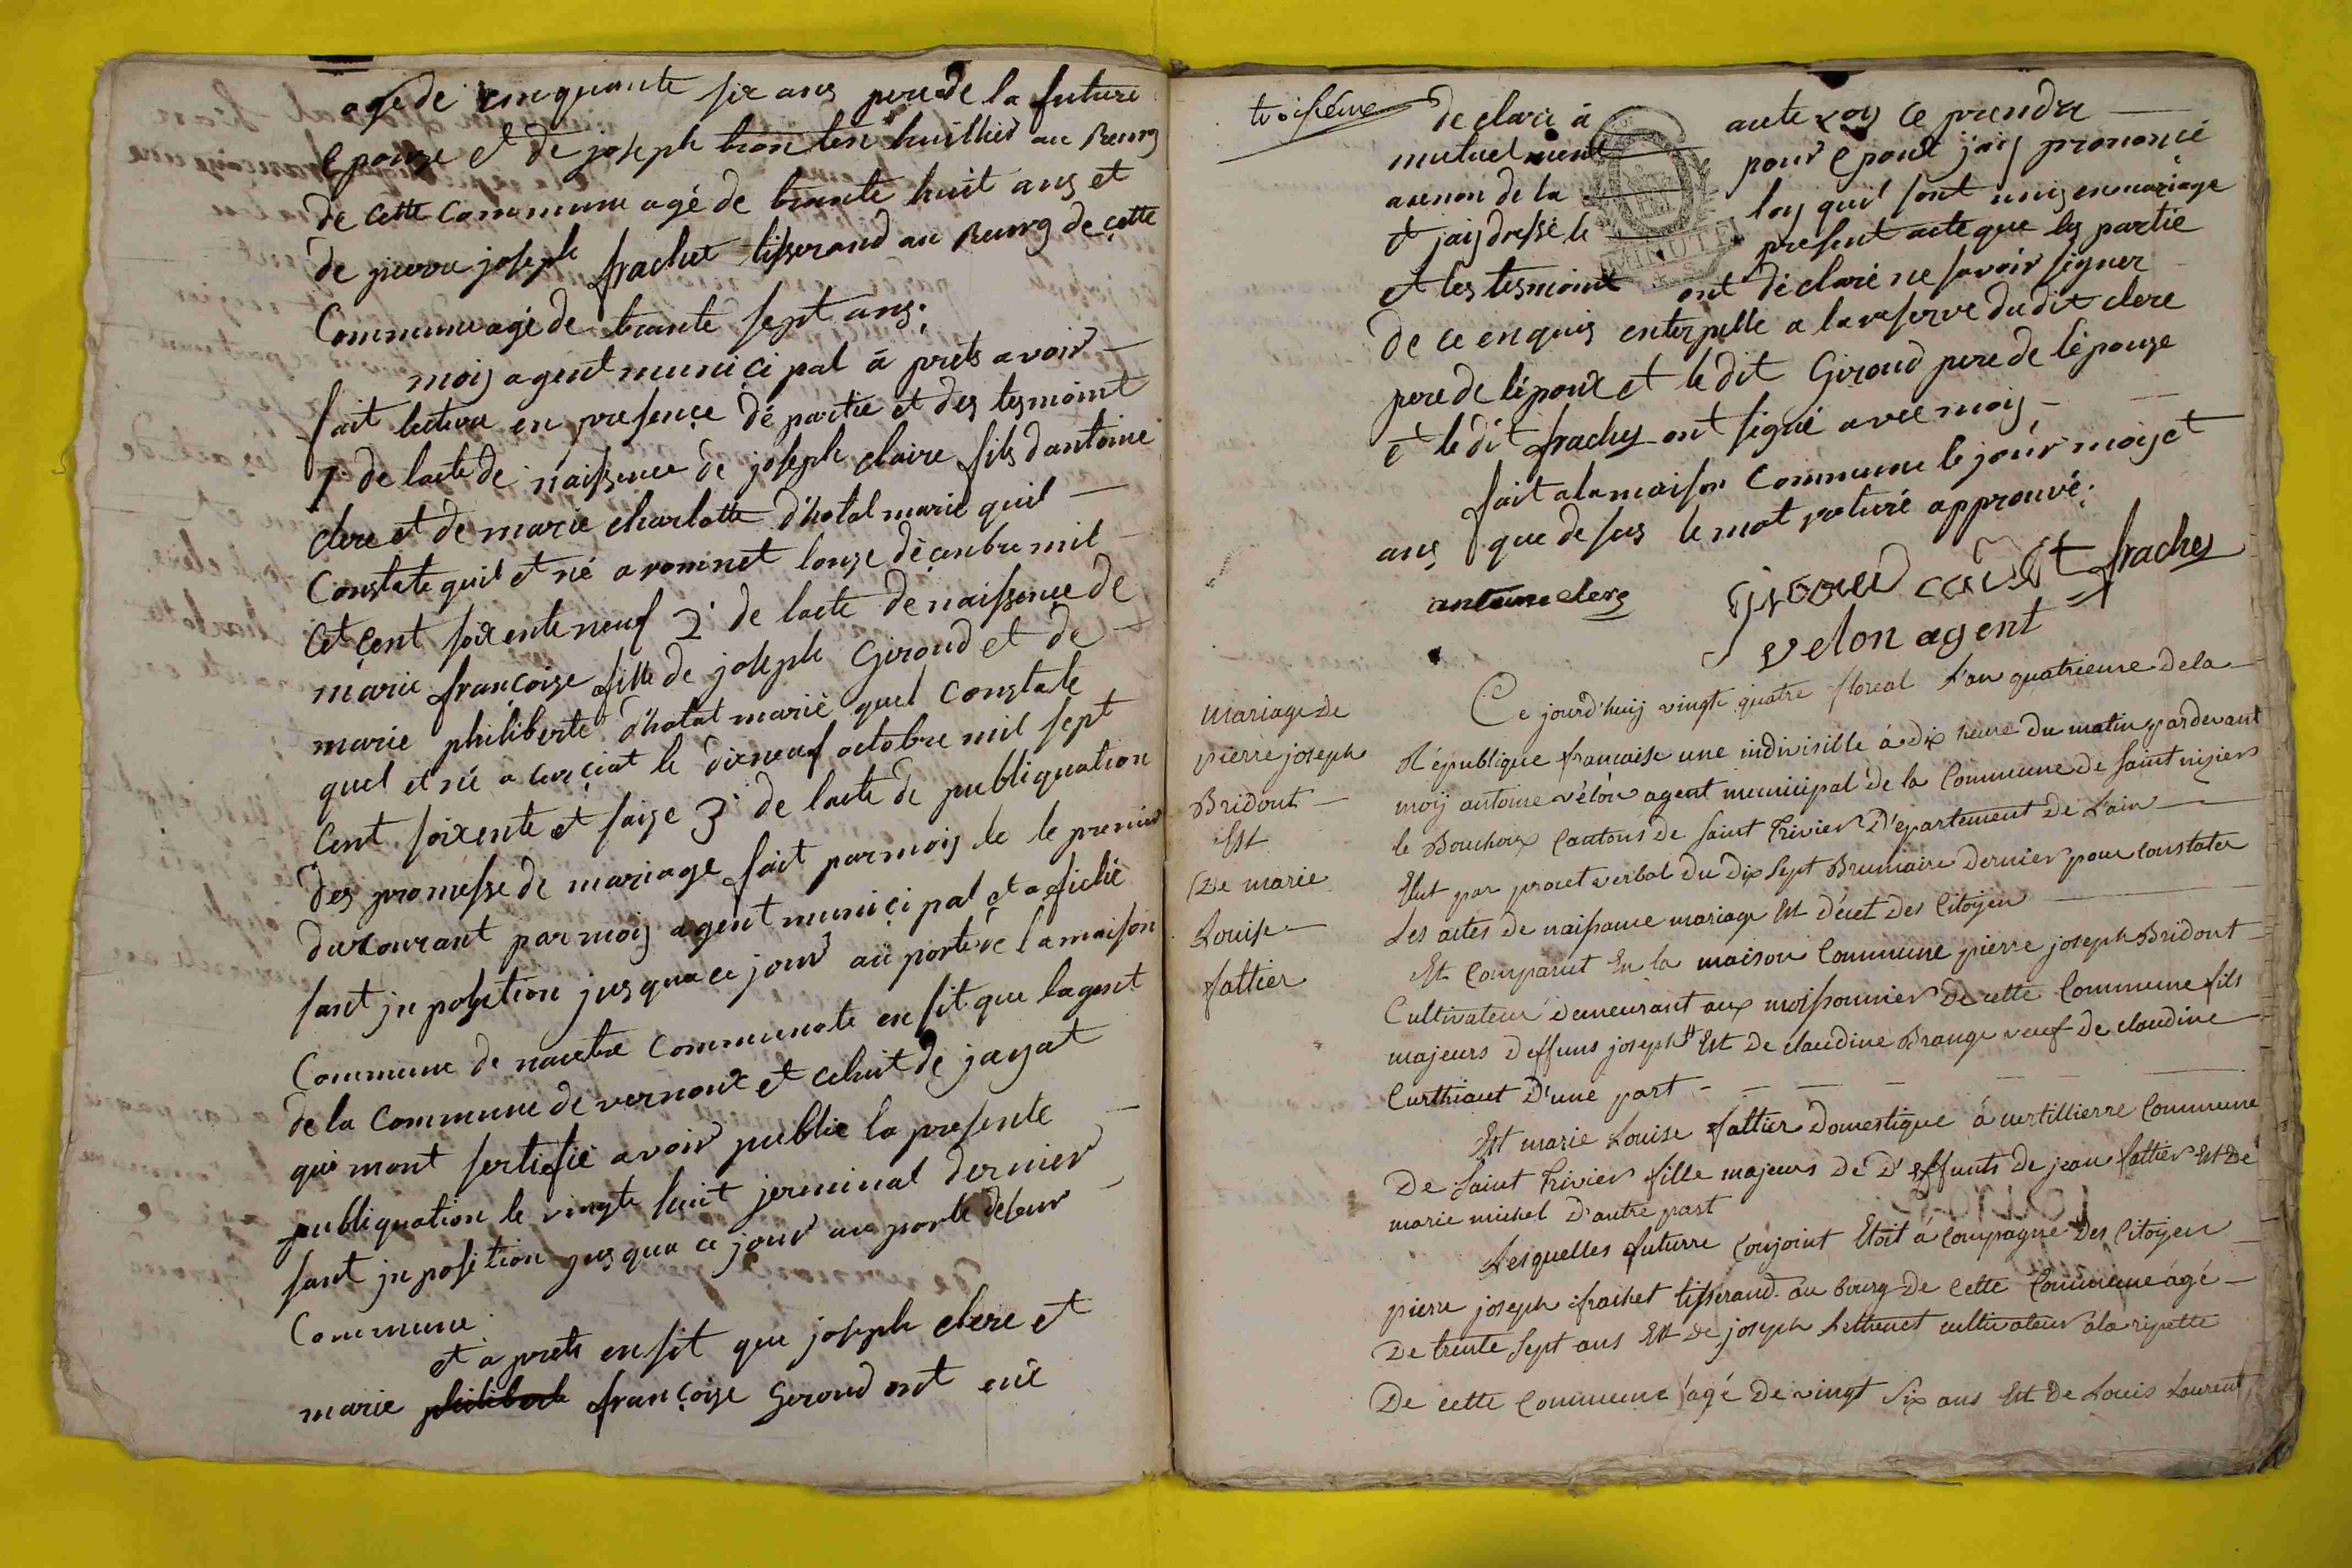 age de cinquante six ans pere de la future
epouze et de joseph tronten huillier au Bourg
de cette Commune agé de trante huit ans et
de pierre joseph frachet tisserand au Bourg de cette
Commune agé de trante sept ans.
moij agent municipal à prets avoir
fait lecture en presençe dé partie et des tesmoint
1° de lacte de naissence de joseph claire fils dantoine
clere et de marie charlotte d'hotal marié quil
Constate quil et né a romnet lonze déçanbre mil
cet çent soixente neuf 2° de lacte de naissence de
marie françoize fille de joseph Giroud et de
marie philiberte d'hotal marié quel constate
quel et né a curçiat le dixneuf octobre mil sept
Cent soixente et saize 3° de lacte de publiquation
des promesse de mariage fait par moij le le premier
du courant par moij agent muniçipal et afiché
sant jn position jusqua ce jour au porte de la maison
Commune de nautre communate ensit que lagent
de la Commune de vernoux et celuit de jayat
qui mont sertiefié avoir publié la presente
publiquation le vingte huit jerminal dernier
sant jn position jusqua ce jour au porte de leur
Commune.
et a prets ensit que joseph clere et
marie philiberte françoize Giroud ont eüt
troisiéme
declaré à aute voij ce prendre
mutuelment pour epouit j'aij prononcé
aunon de la loij quil sont unis en mariage
et jaij dressé le present acte que les partie
MINUTE
et les tesmoint ont déclaré ne savoir signer
de ce enquis enterpelle a la reserve du dit clere
pere de lépoux et le dit Giroud pere de lépouze
et le dit frachet ont signé avec moij
fait a la maison Commune le jour mois et
ans que desus le mot raturé approuvé.
antoine clerc Giroud frachet
velon agent
Mariage de
pierre joseph
Bridout
Est
De marie
Louise
fattier
Ce jourd'huij vingte quatre floreal l'an quatrieme de la
République francaise une indivisille à dix heure du matin pardevant
moij antoine vélon agent municipal de la Commune de Saint nizier
le Bouchoux Cantons de Saint Trivier D'epartement de L'ain
Elut par procet verbal du dix Sept Brumaire dernier pour Constater
Les actes de naissance mariage Est décet des Citoyen
Est Comparut En la maison Commune pierre joseph Bridout
Cultivateur demeurant aux moissonnier de cette Commune fils
majeurs deffuns joseph Est de claudine Brange veuf de claudine
Curthiaut D'une part
Est marie Louise fattier domestique à curtillierre Commune
De Saint Trivier fille majeurs de d'effunts de jean fattier Est de
marie michel d'autre part
Lesquelles futurre Conjoint Etoit à Compagne des Citoyen
pierre joseph frachet tisserand au bourg de cette Commune âgé
De trente Sept ans Est de joseph Lethenet cultivateur à la ripette
De cette Commune âgé de vingt Six ans Est de Louis Laurent